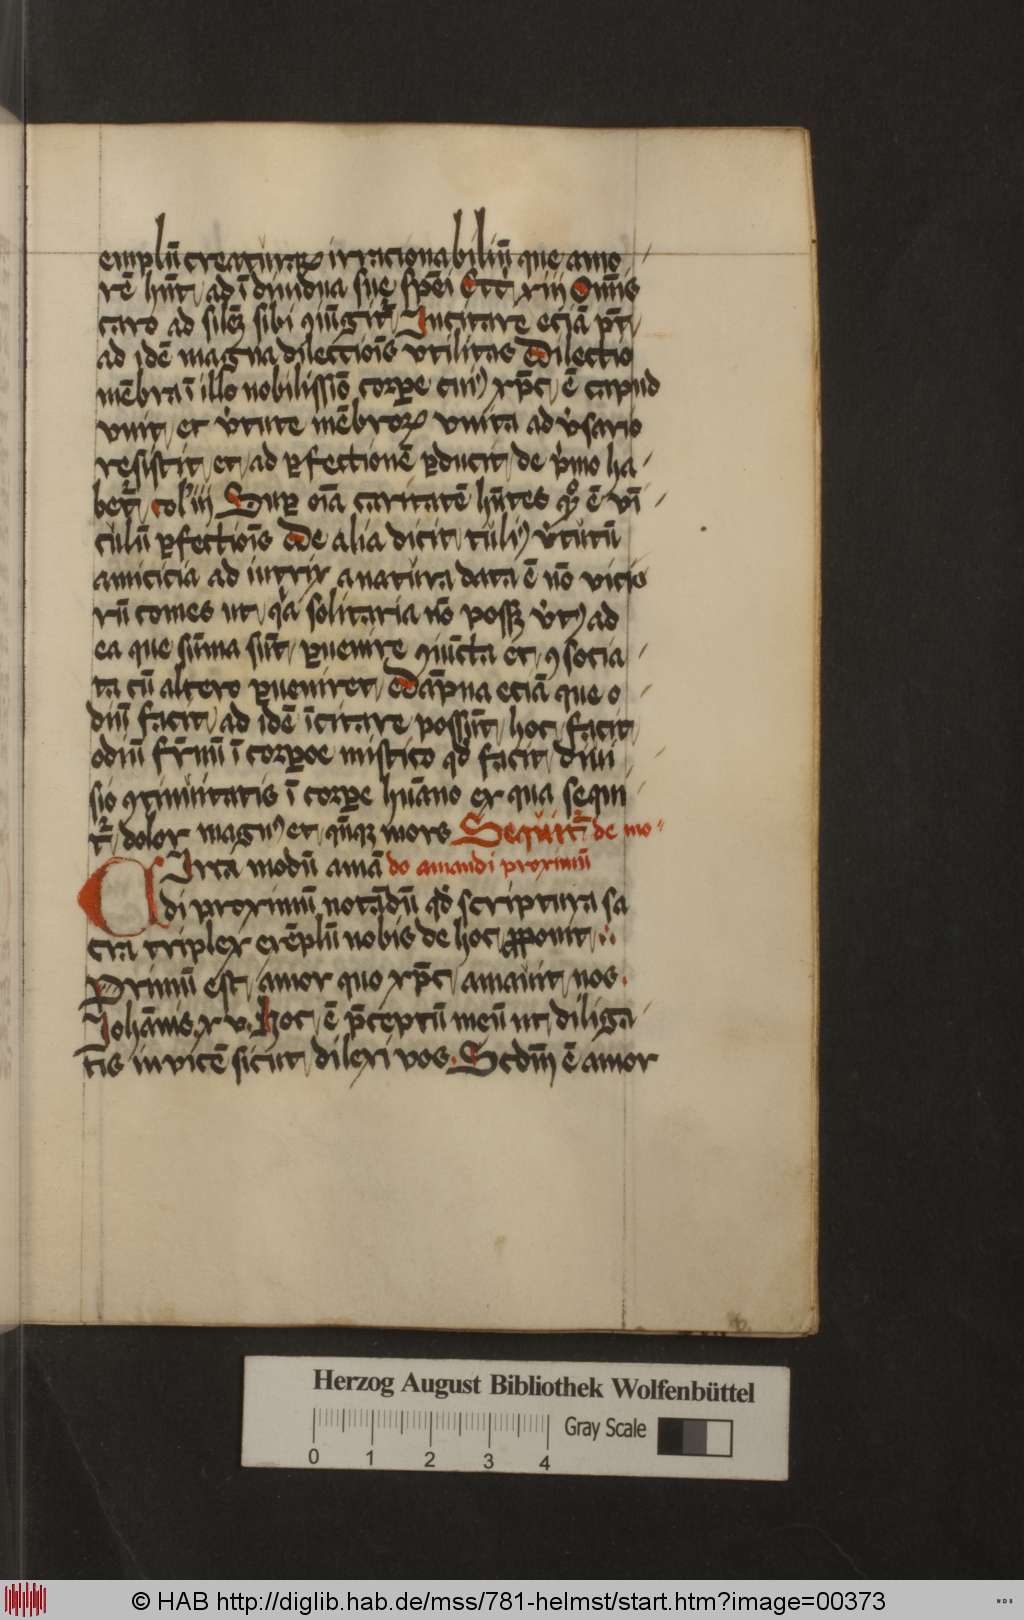 emplū creaturaꝝ irracionabiliū que amo
rē hn̄t ad īdiuidua sue spēi Ecc͛ xiij Om̄is
caro ad silēʒ sibi ꝯiūgit᷑ Incitare eciā pn̄t
ad idē magna dilectiōis vtilitas dilectio
mēbra ī illo nobilissīo corpe cuiꝰ xp̄c ē capud
vnit et v̾tute mēbroꝝ vnita adv̾sario
resistit et ad ꝑfectionē ꝑducit de p̾mo ha
bet᷑ col iij Suꝑ oīa caritatē hn̄tes qͦ ē vī
culū ꝑfectiōis De alia dicit tuliꝰ v̾tutū
amicicia ad iutrix a natura data ē nō vicio
rū comes ut qͥa solitaria nō possʒ v̾tꝰ ad
ea que sūma sūt ꝑuenire ꝯiūcta et ꝯsocia
ta cū altero ꝑueniret Dāpna eciā que o
diū facit ad idē īcitare possūt hoc facit
odiū fr̄nū ī corpoe mistico qd̾ facit diui
sio ꝯtinuitatis ī corpe hūano ex qua sequi
t᷑ dolor magnꝰ et qn̄qʒ mors Sequit᷑ de mo
Circa modū amā do amandi proximū
di proximū notādū qd̾ scriptura sa
cra triplex exēplū nobis de hoc ꝓponit
Primū est amor quo xp̄c amauit nos
Johānis xv Hoc ē p̄ceptū meū ut diliga
tis invicē sicut dilexi vos Scdm̄ ē amor
Herzog August Bibliothek Wolfenbüttel
Gray Scale
0 1 2 3 4
© HAB http://diglib.hab.de/mss/781-helmst/start.htm?image=00373